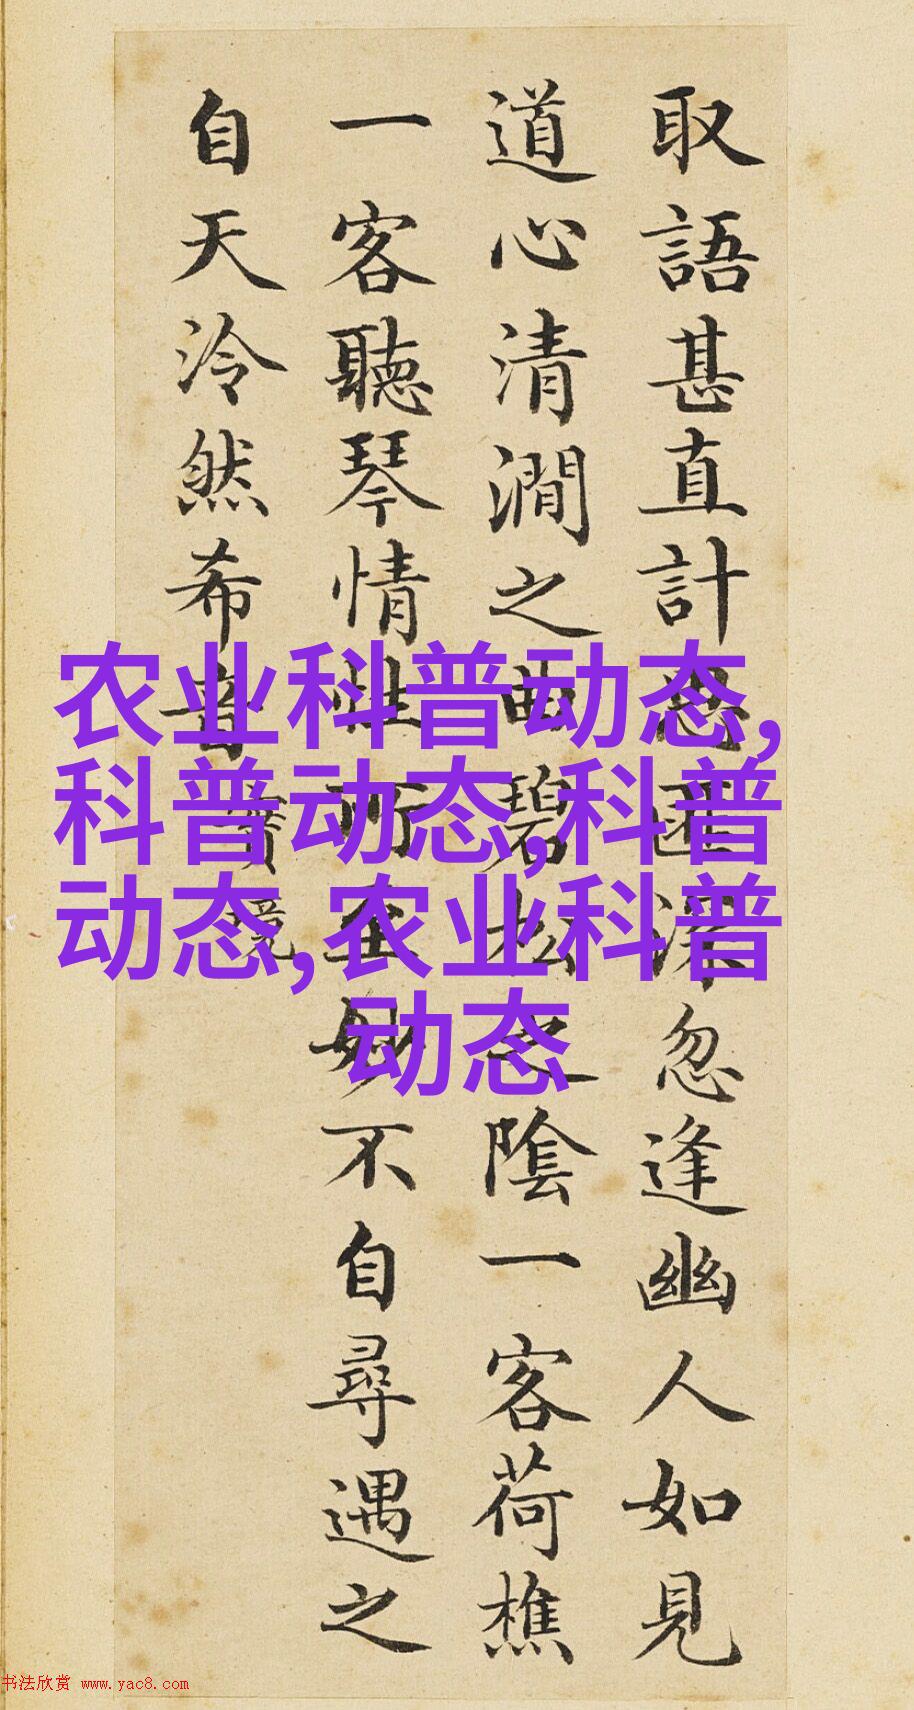 取語甚直計思匪深忽逢幽人如見
道心清澗之曲碧松之陰一客荷樵
一客聽琴情性所至妙不自尋遇之
自天泠然希音
實境
农业科普动态,
科普动态,科普
动态,农业科普
动态
书法欣赏 www.yac8.com